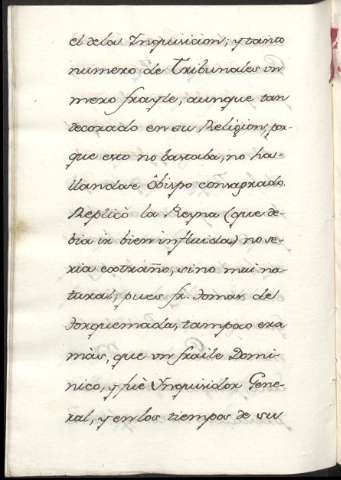 el dela Inquisicion; y tanto
numero de Tribunales un
mero frayle, aunque tan
decorado en su Religion, por
que esto no bastaba, no ha-
llandose Obispo consagrado.
Replicò la Reyna (que de-
bia ir bien influida) no se-
ria extraño, sino mui na-
tural; pues fr. Tomas de
Torquemada, tampoco era
màs, que un fraile Domi-
nico, y fuè Inquisidor Gene-
ral, y en los tiempos de su